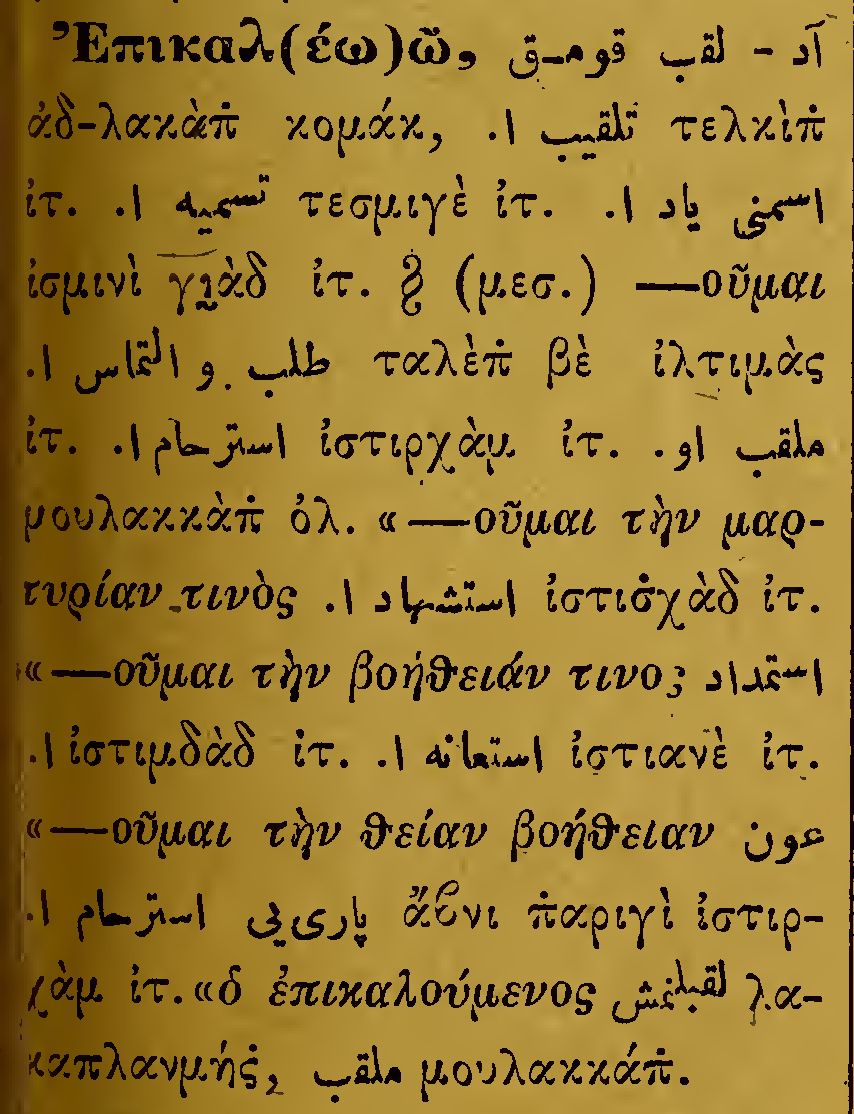 Ἐπικαλ(έω)ῶ, آد - لقب قومـق
ἀδ-λακὰπ̇ κομάκ, تلقیب ا. τελκὶπ̇
ἰτ. تسمیه ا. τεσμιγὲ ἰτ. اسمنی یاد ا.
ἰσμινὶ γι̰ὰδ ἰτ. § (μεσ.) —οῦμαι
طلب و التماس ا. ταλὲπ̇ βὲ ἰλτιμὰς
ἰτ. استرحام ا. ἰστιρχὰμ ἰτ. ملقب او.
μουλακκὰπ̇ ὀλ. «—οῦμαι τὴν μαρ-
τυρίαν τινὸς استشهاد ا. ἰστισ̇χὰδ ἰτ.
«—οῦμαι τὴν βοήθειάν τινος استمداد
ا. ἰστιμδὰδ ἰτ. استعانه ا. ἰστιανὲ ἰτ.
«—οῦμαι τὴν θείαν βοήθειαν عون
باری یی استرحام ا. ἄβνι π̇αριγὶ ἰστιρ-
χὰμ ἰτ. «ὁ ἐπικαλούμενος لقبلنمش λα-
καπλανμήσ̇, ملقب μουλακκάπ̇.